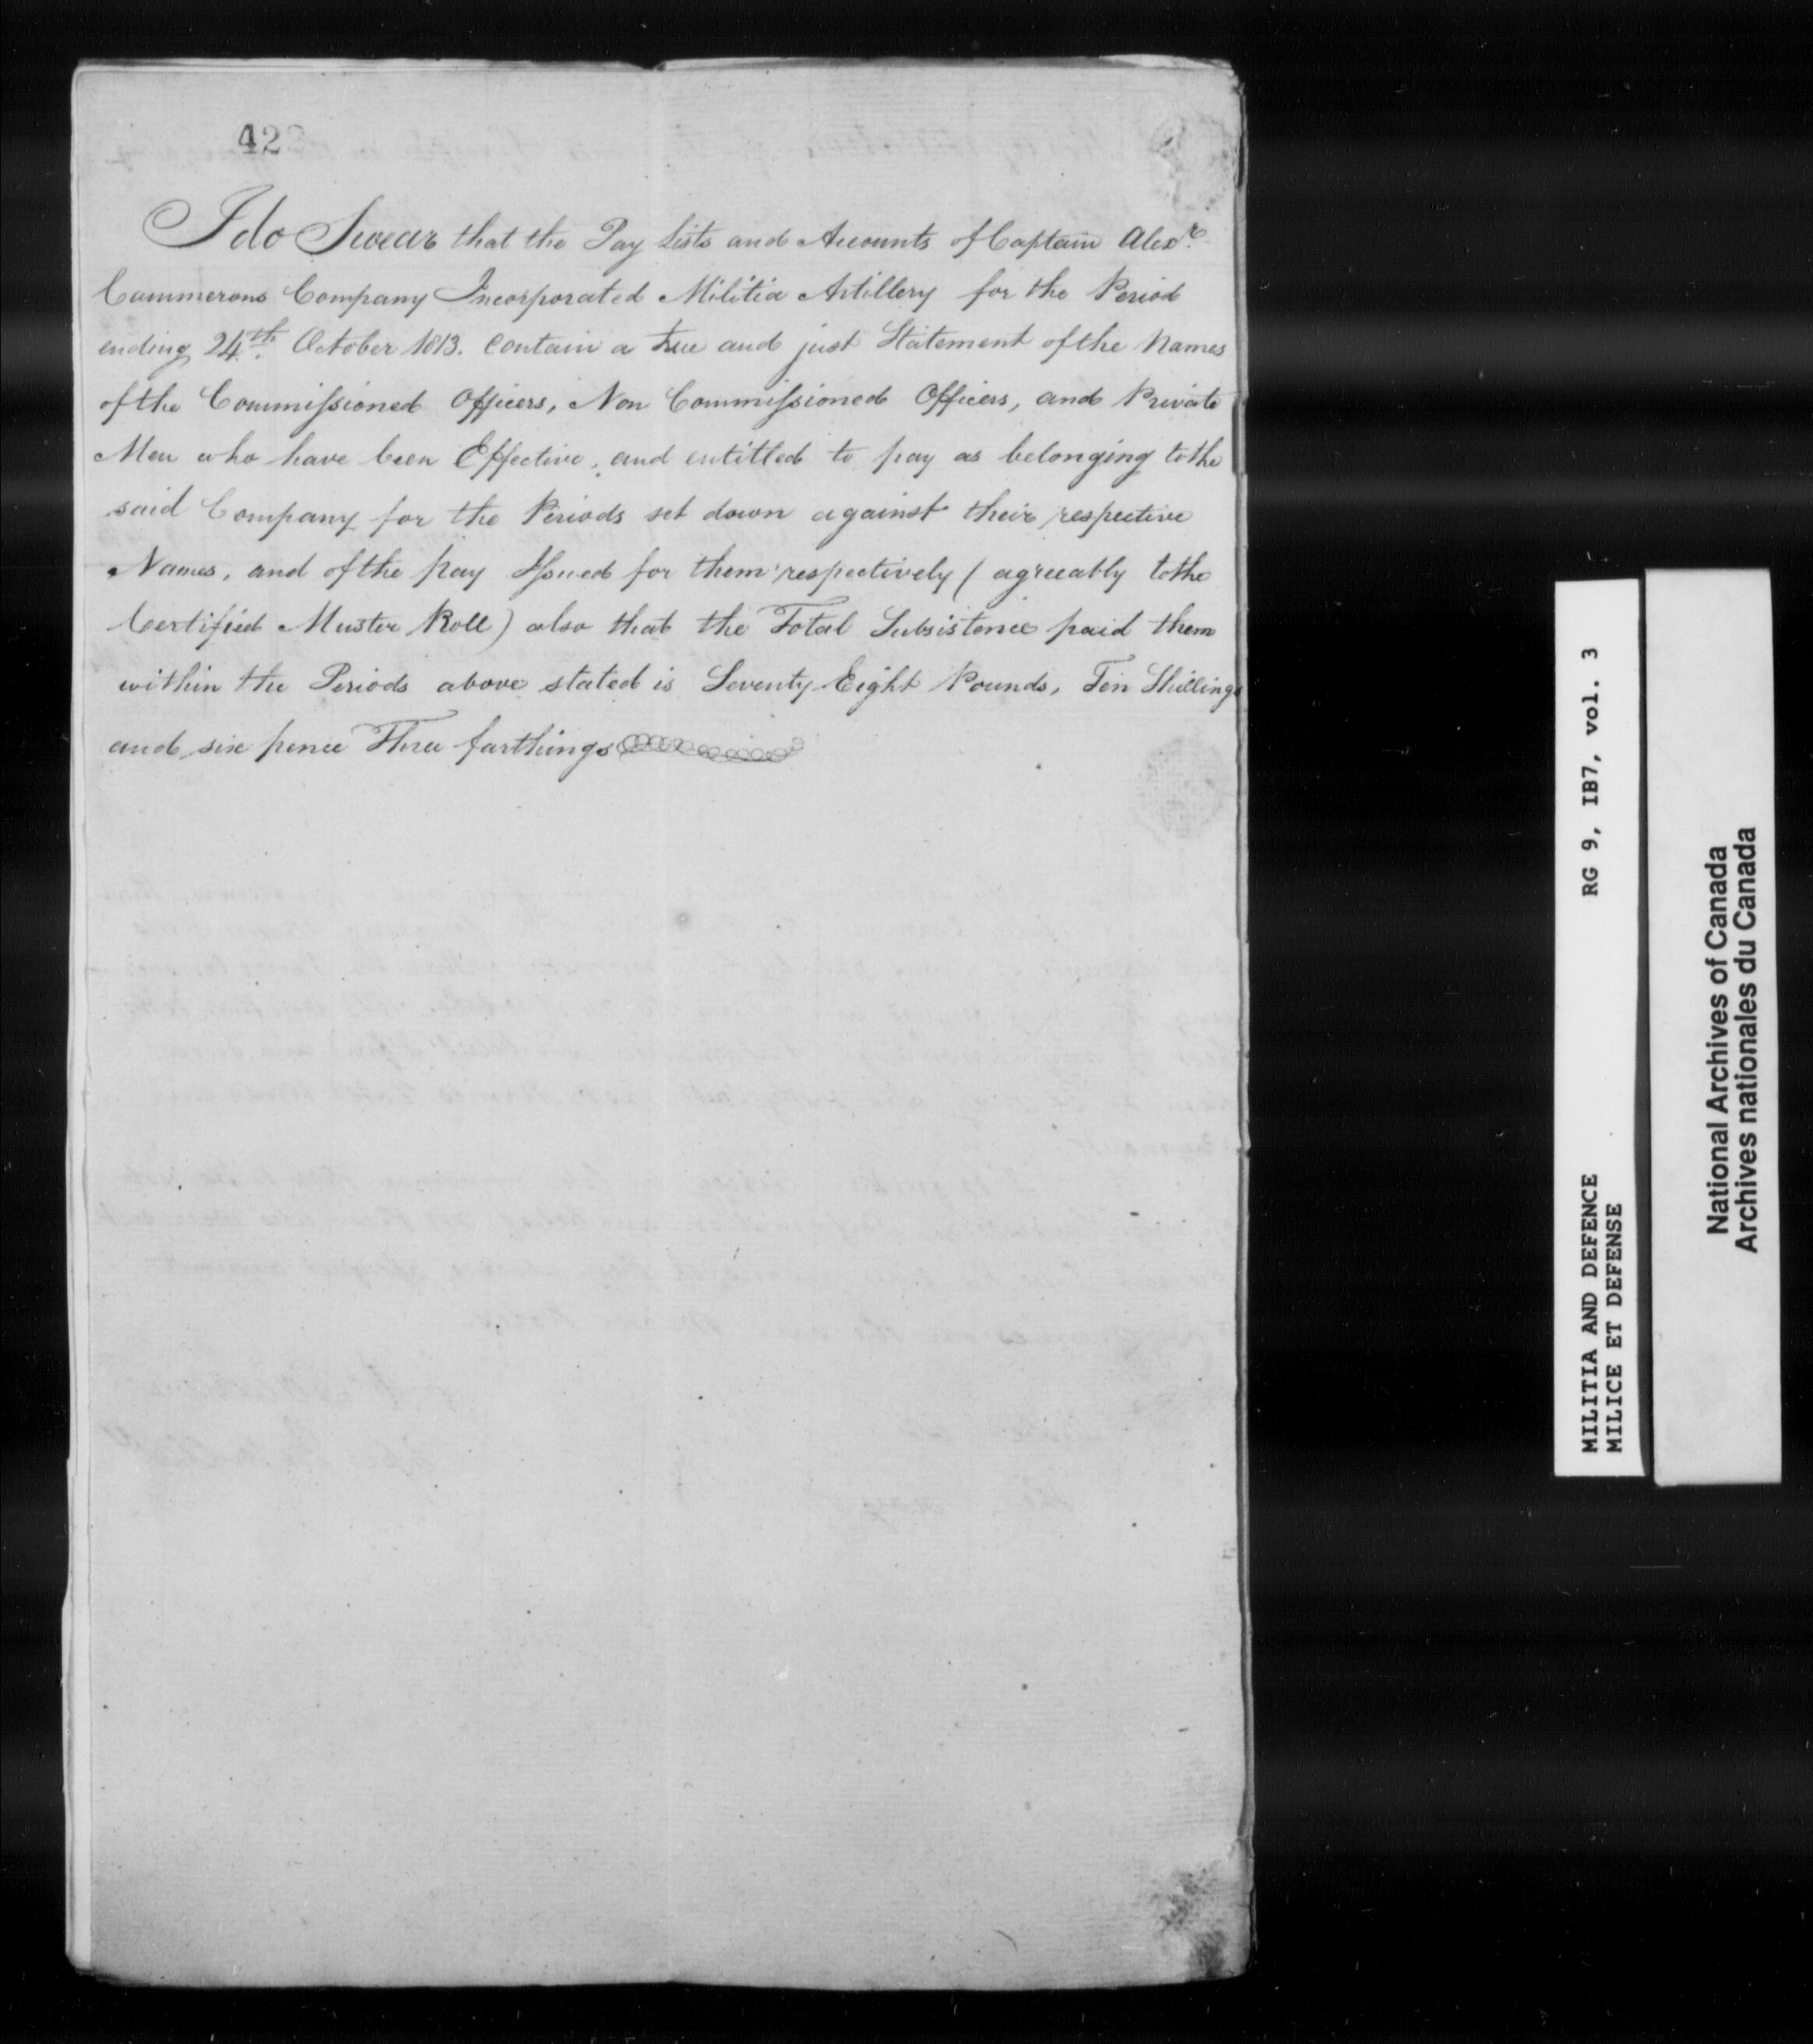 422
I do Swear that the Pay Lists and Accounts of Captain Alexr.
Cammerons Company Incorporated Militia Artillery for the Period
ending 24th. October 1813. contain a true and just Statement of the Names
of the Commissioned Officers, Non Commissioned Officers, and Private
Men who have been Effective, and entitled to pay as belonging to the
said Company for the Periods set down against their respective
Names, and of the pay Issued for them respectively (agreeably to the
Certified Muster Roll) also that the Total Subsistence paid them
within the Periods above stated is Seventy Eight Pounds, Ten Shillings
and six pence Three farthings
MILITIA AND DEFENCE RG 9, IB7, vol. 3
MILICE ET DEFENSE
National Archives of Canada
Archives nationales du Canada